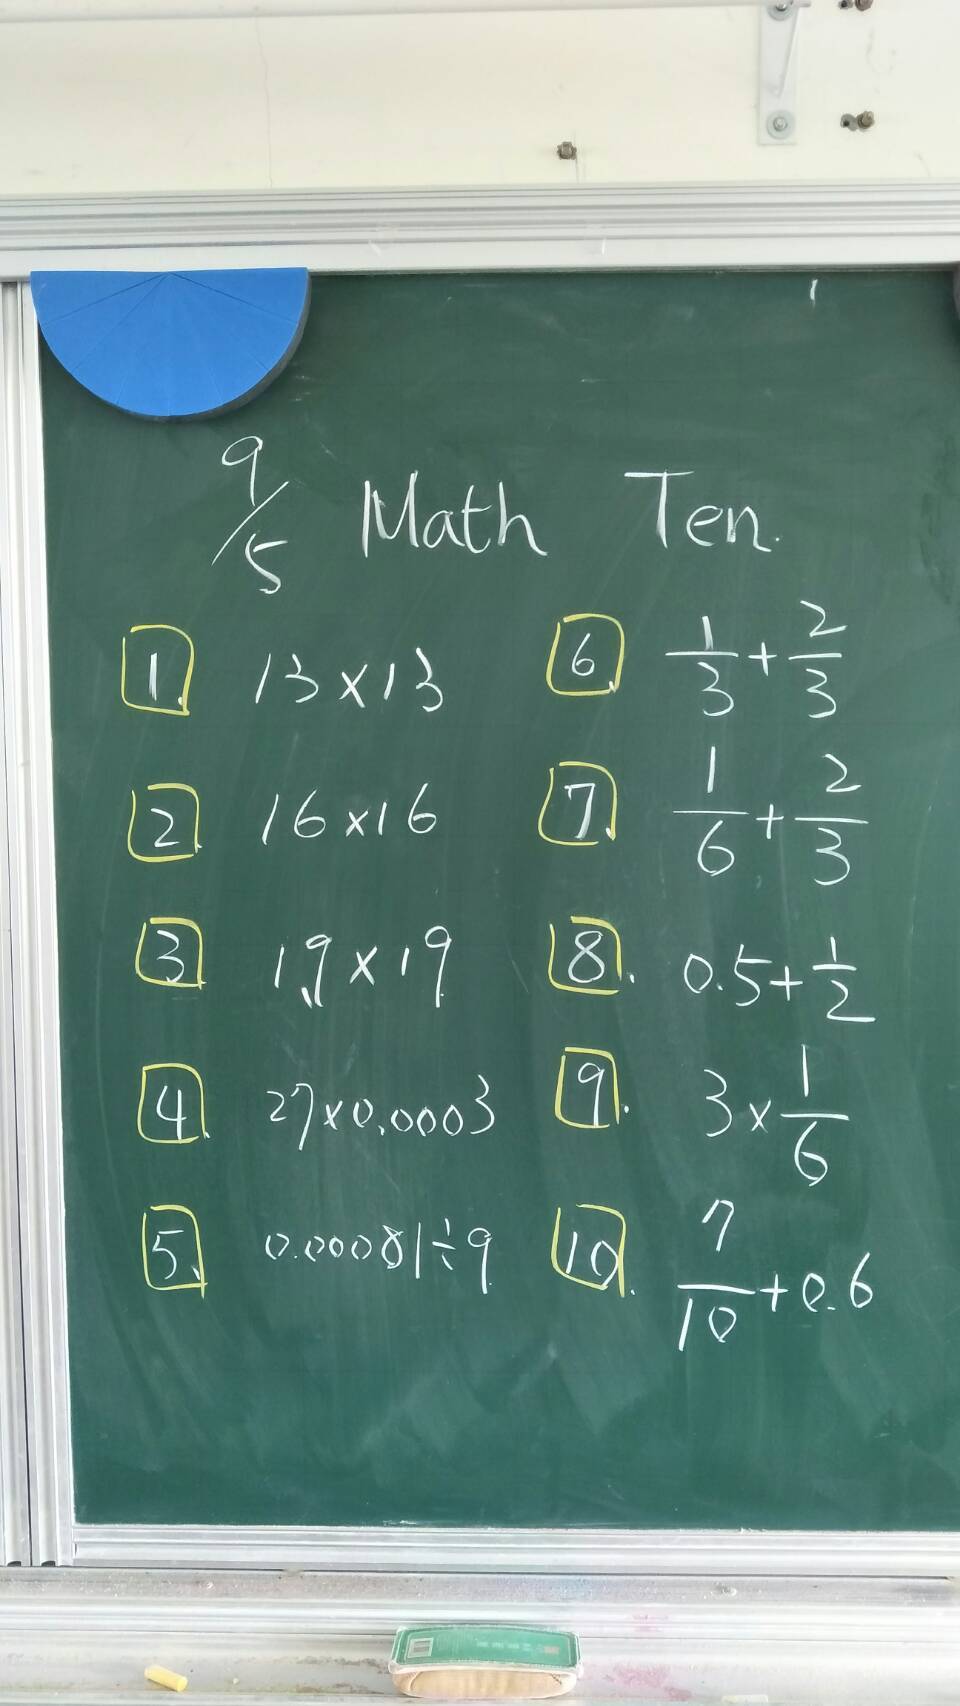 9/5 Math Ten.
1. 13×13
2. 16×16
3. 19×19
4. 27×0.0003
5. 0.00081÷9
6. 1/3+2/3
7. 1/6+2/3
8. 0.5+1/2
9. 3×1/6
10. 7/10+0.6